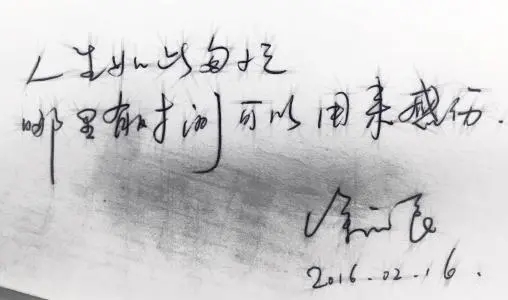 人生如此匆忙
哪里有时间可以用来感伤.
2016.02.16.